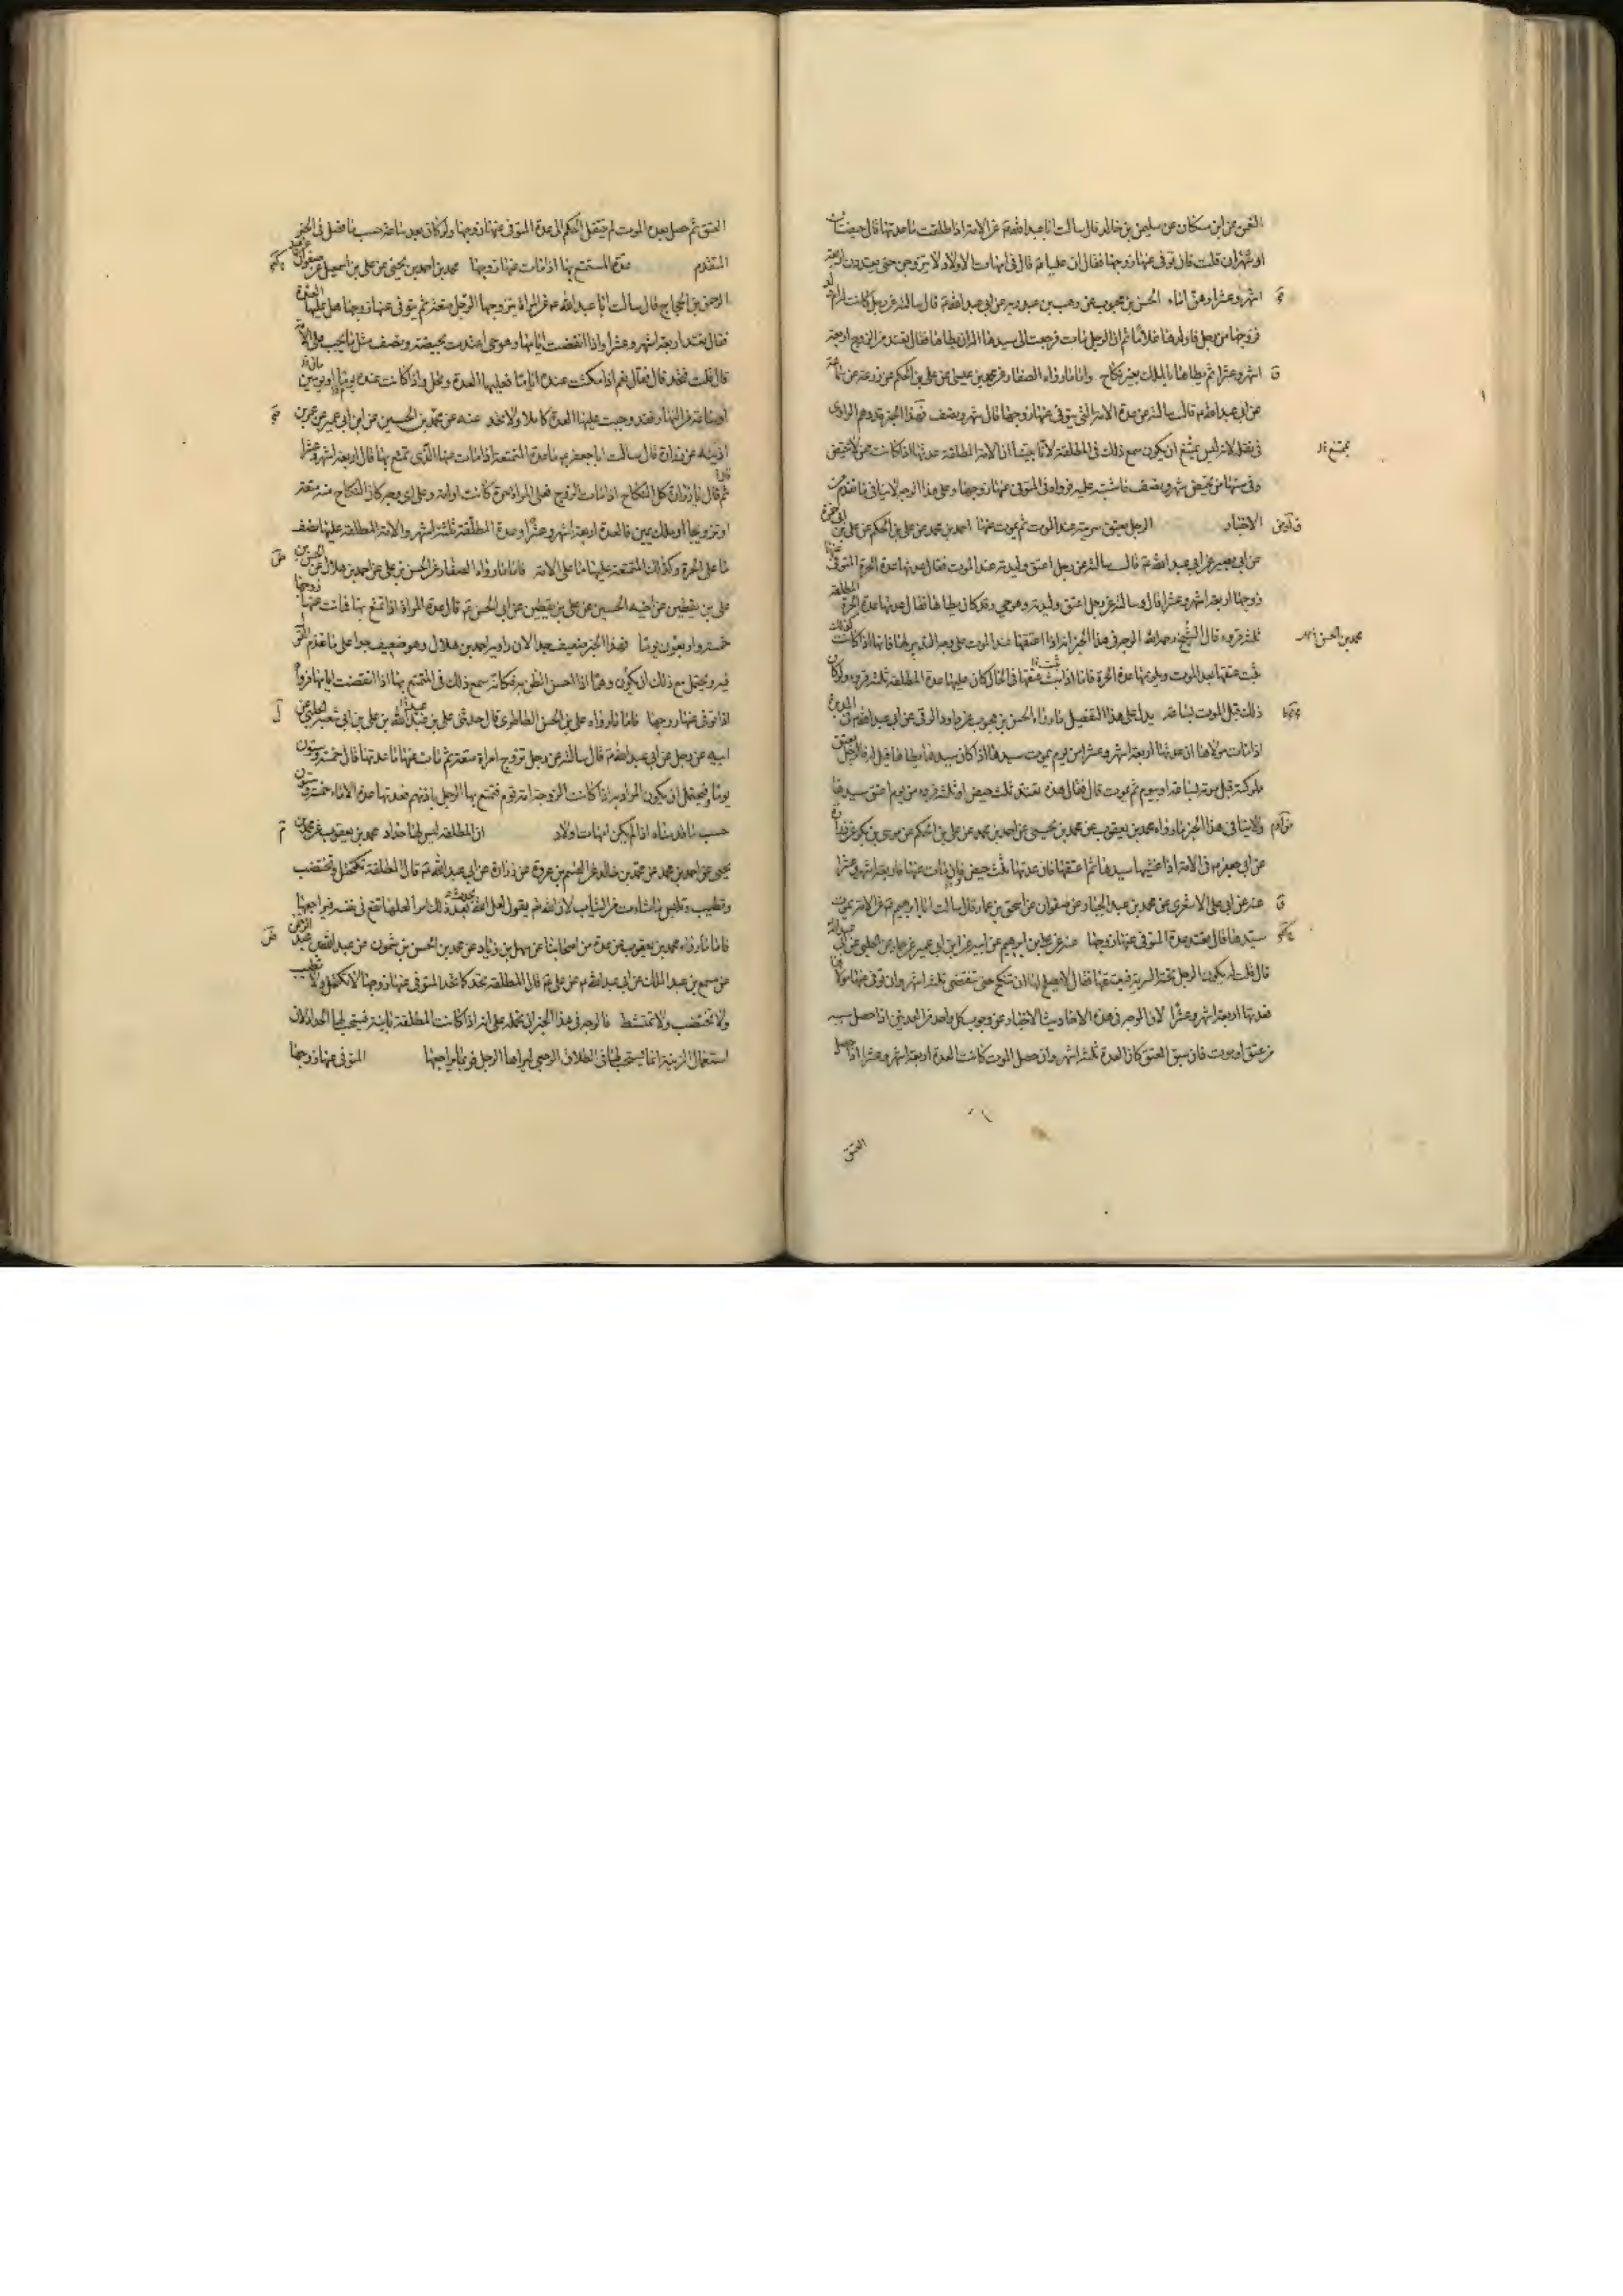 النضر عن ابن مسكان عن سليمن بن خالد قال سالت ابا عبد الله عن الامة اذا طلقت ما عدتها قال حيضتان
او شهران قلت فان توفى عنها زوجها فقال ان عليا قال فى امهات الاولاد لا يتزوجن حتى يعتددن اربعة
اشهر وعشرا وهن اماء الحسن بن محبوب عن وهب بن عبد ربه عن ابى عبد الله قال سالته عن رجل كانت له ام ولد
فزوجها من رجل فاولدها غلاما ثم ان الرجل مات فرجعت الى سيدها اله ان يطاها فقال تعتد من الزوج اربعة
اشهر وعشرا ثم يطاها بالملك بغير نكاح واما ما رواه الصفار عن محمد بن عيسى عن على بن الحكم عن زرعة عن سماعة
عن ابى عبد الله قال سالته عن عدة الامة التى يتوفى عنها زوجها قال شهر ونصف فهذا الخبر قد وهم الراوى
فى نقله لانه ليس يمتنع ان يكون سمع ذلك فى المطلقة لانا بينا ان الامة المطلقة عدتها اذا كانت ممن لا تحيض
وفى سنها من تحيض شهر ونصف فاشتبه عليه فرواه فى المتوفى عنها زوجها وعلى هذا الوجه لا ينافى ما تقدم من
الاخبار الرجل يعتق سريته عند الموت ثم يموت عنها احمد بن محمد عن على بن الحكم عن على بن ابى حمزة
عن ابى بصير عن ابى عبد الله قال سالته عن رجل اعتق وليدته عند الموت فقال عدتها عدة الحرة المتوفى عنها
زوجها اربعة اشهر وعشرا قال وسالته عن رجل اعتق وليدته وهو حى وقد كان يطاها فقال عدتها عدة الحرة المطلقة
ثلثة قروء قال الشيخ رحمه الله الوجه فى هذا الخبر انه اذا اعتقها عند الموت على وجه التدبير لها فانها اذا كانت كذلك
يثبت عتقها بعد الموت وعدتها عدة الحرة فاما اذا بت عتقها فى الحال كان عليها عدة المطلقة ثلثة قروء ولو كان
ذلك قبل الموت بساعة يدل على هذا التفصيل ما رواه الحسن بن محبوب عن داود الرقى عن ابى عبد الله فى المدبرة
اذا مات مولاها ان عدتها اربعة اشهر وعشرا من يوم يموت سيدها اذا كان سيدها يطاها قيل له فالرجل يعتق
مملوكته قبل موته بساعة او بيوم ثم يموت قال فقال هذه تعتد بثلث حيض او ثلثة قروء من يوم اعتقها سيدها
ولا ينافى هذا الخبر ما رواه محمد بن يعقوب عن محمد بن يحيى عن احمد بن محمد عن على بن الحكم عن موسى بن بكر عن زرارة
عن ابى جعفر فى الامة اذا غشيها سيدها ثم اعتقها فان عدتها ثلث حيض فان مات عنها فاربعة اشهر وعشرا
عنه عن ابى على الاشعرى عن محمد بن عبد الجبار عن صفوان عن اسحق بن عمار قال سالت ابا ابرهيم عن الامة يموت
سيدها قال تعتد عدة المتوفى عنها زوجها عنه عن على بن ابرهيم عن ابيه عن ابن ابى عمير عن حماد عن الحلبى عن ابى عبد الله
قال قلت له يكون الرجل تحته السرية فيعتقها فقال لا يصلح لها ان تنكح حتى تنقضى ثلثة اشهر وان توفى عنها مولاها
فعدتها اربعة اشهر وعشرا لان الوجه فى هذه الاحاديث الاخبار عن وجوب كل واحد من العدتين اذا حصل سببه
من عتق او موت فان سبق العتق كان العدة ثلثة اشهر وان حصل الموت كانت العدة اربعة اشهر وعشرا اذا حصل
العتق
العتق ثم حصل بعده الموت لم ينتقل الحكم الى عدة المتوفى عنها زوجها ولو كان بعد ساعة حسب ما فصل فى الخبر
المتقدم عدة المتمتع بها اذا مات عنها زوجها محمد بن احمد بن يحيى عن على بن اسمعيل عن صفوان عن عبد
الرحمن بن الحجاج قال سالت ابا عبد الله عن المراة يتزوجها الرجل متعة ثم يتوفى عنها زوجها هل عليها العدة
فقال تعتد اربعة اشهر وعشرا واذا انقضت ايامها وهو حى اعتدت بحيضة ونصف مثل ما يجب على الامة
قال قلت فتحد قال فقال نعم اذا مكثت عنده اياما فعليها العدة وتحد واذا كانت عنده يوما او يومين
او ساعة من النهار فقد وجبت عليها العدة كاملا ولا تحد عنه عن محمد بن الحسين عن ابن ابى عمير عن عمر بن
اذينة عن زرارة قال سالت ابا جعفر ما عدة المتمتعة اذا مات عنها الذى تمتع بها قال اربعة اشهر وعشرا
ثم قال يا زرارة كل النكاح اذا مات الزوج فعلى المراة حرة كانت او امة وعلى اى وجه كان النكاح منه متعة
او تزويجا او ملك يمين فالعدة اربعة اشهر وعشرا وعدة المطلقة ثلثة اشهر والامة المطلقة عليها نصف
ما على الحرة وكذلك المتمتعة عليها ما على الامة فاما ما رواه الصفار عن الحسن بن على عن احمد بن هلال عن الحسين بن
على بن يقطين عن اخيه الحسين عن على بن يقطين عن ابى الحسن قال عدة المراة اذا تمتع بها فمات عنها زوجها
خمسة واربعون يوما فهذا الخبر ضعيف جدا لان راويه احمد بن هلال وهو ضعيف جدا على ما تقدم القول
فيه ويحتمل مع ذلك ان يكون وهما اذا احسن الظن به فكانه سمع ذلك فى المتمتع بها اذا انقضت ايامها فرواه
اذا توفى عنها زوجها فاما ما رواه على بن الحسن الطاطرى قال حدثنى على بن عبيد الله بن على بن ابى شعبة الحلبى عن
ابيه عن رجل عن ابى عبد الله قال سالته عن رجل تزوج امراة متعة ثم مات عنها ما عدتها قال خمسة وستون
يوما فيحتمل ان يكون المراد به اذا كانت الزوجة امة قوم فتمتع بها الرجل باذنهم فعدتها عدة الاماء خمسة وستون
حسب ما قدمناه اذا لم يكن امهات اولاد ان المطلقة ليس لها حداد محمد بن يعقوب عن محمد بن
يحيى عن احمد بن محمد عن محمد بن خالد عن القسم بن عروة عن زرارة عن ابى عبد الله قال المطلقة تكتحل وتختضب
وتطيب وتلبس ما شاءت من الثياب لان الله يقول لعل الله يحدث بعد ذلك امرا لعلها تقع فى نفسه فيراجعها
فاما ما رواه محمد بن يعقوب عن عدة من اصحابنا عن سهل بن زياد عن محمد بن الحسن بن شمون عن عبد الله بن عبد الرحمن
عن مسمع بن عبد الملك عن ابى عبد الله عن على قال المطلقة تحد كما تحد المتوفى عنها زوجها لا تكتحل ولا تطيب
ولا تختضب ولا تمتشط فالوجه فى هذا الخبر ان نحمله على انه اذا كانت المطلقة باينة فيستحب لها الحداد لان
استعمال الزينة انما يستحب لها فى الطلاق الرجعى ليراها الرجل فربما يراجعها المتوفى عنها زوجها